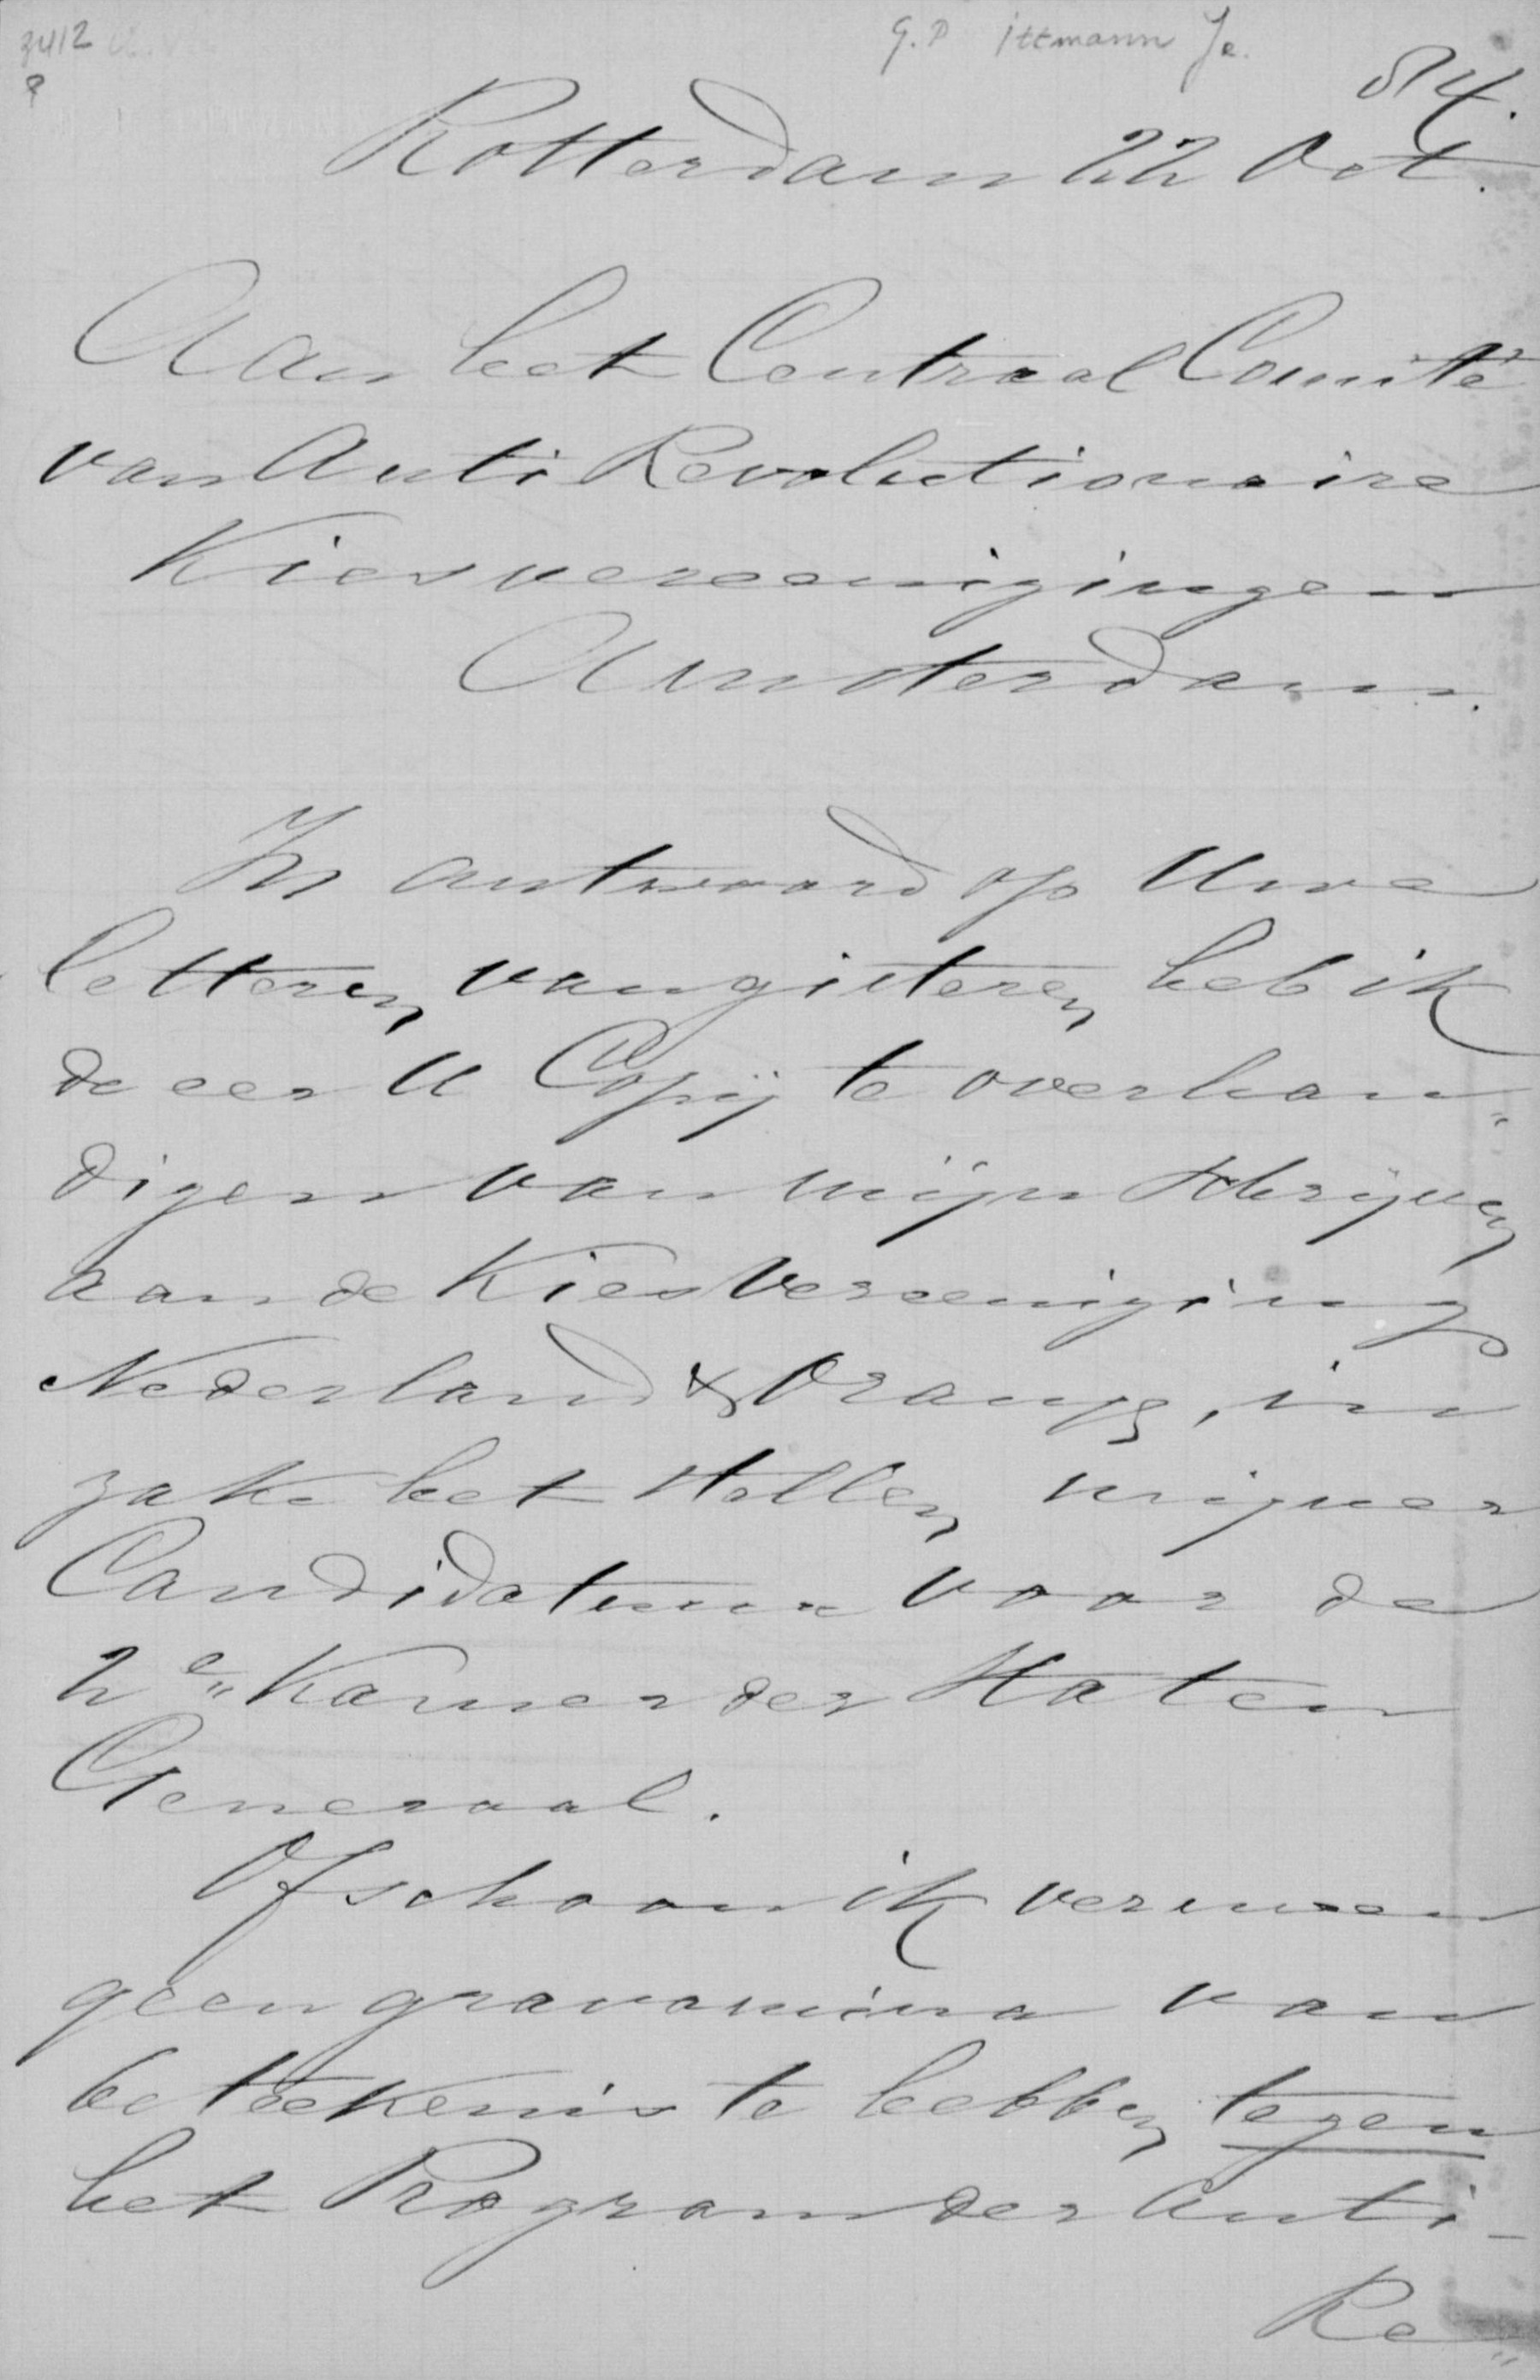 3412
G.P Ittmann Jr.
84.
Rotterdam 22 Oct.
Aan het Centraal Comité
van Anti Revolutionaire
Kiesvereenigingen
Amsterdam.
In antwoord op Uwe
letteren van gisteren heb ik
de eer U Copij te overhan„
digen van mijn schrijven
aan de Kiesvereeniging
Nederland & Oranje, in
zake het stellen mijner
Candidatuur voor de
2e„ Kamer der Staten
Generaal.
Ofschoon ik vermeen
geen gravamina van
beteekenis te hebben tegen
het Program der Anti-
Re„